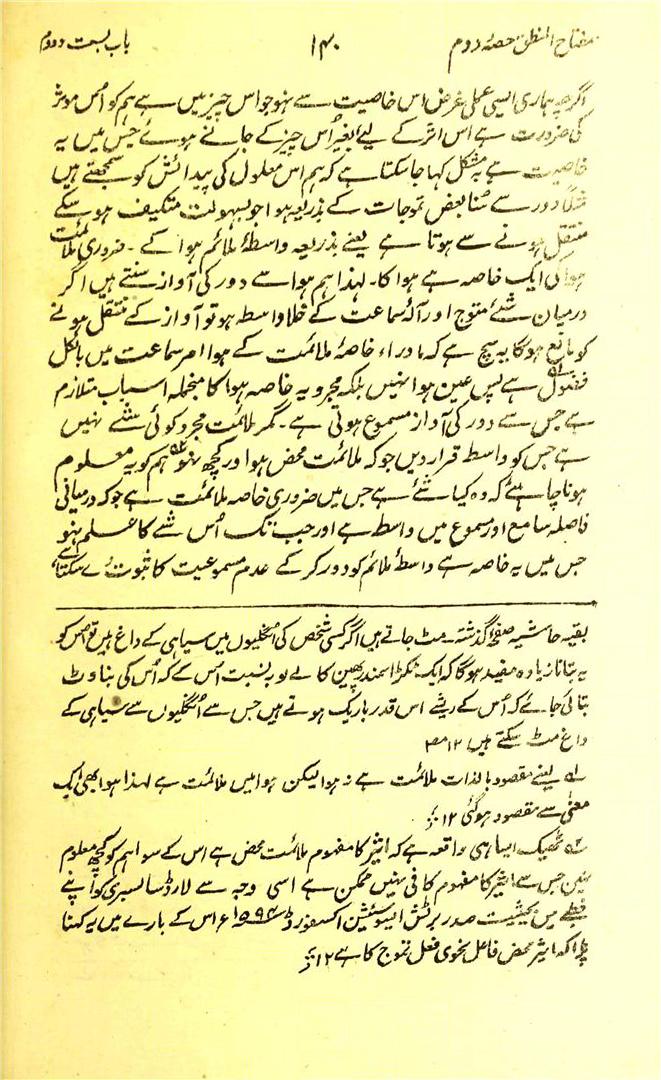 مفتاح المنطق حصۂ دوم ۱۴۰ باب بست و دوم
اگرچہ ہماری ایسی عملی غرض اس خاصیت سے نہو جو اس چیز میں ہے ہم کو اُس موثر
کی ضرورت ہے اس اثر کے لیے بغیر اُس چیز کے جانے ہوئے جس میں یہ
خاصیت ہے بہ مشکل کہا جا سکتا ہے کہ ہم اس معلول کی پیدائش کو سمجھتے ہیں
مثلاً دور سے سننا بعض تموجات کے بذریعہ ہوا جو بسہولت متکیف ہو سکے
منتقل ہونے سے ہوتا ہے یعنے بذریعہ واسطۂ ملائم ہوا کے ۔ ضروری ملائمت
ہوائی ایک خاصہ ہے ہوا کا۔ لہذا ہم ہوا سے دور کی آواز سنتے ہیں اگر
درمیان شئے متوج اور آلۂ سماعت کے خلا واسطہ ہو تو آواز کے منتقل ہونے
کو مانع ہوگا یہ سچ ہے کہ ماوراء خاصۂ ملائمت کے ہوا امر سماعت میں بالکل
فضول ہے پس عین ہوا نہیں بلکہ مجرد یہ خاصہ ہوا کا منجملہ اسباب متلازم
ہے جس سے دور کی آواز مسموع ہوتی ہے۔ مگر ملائمت مجرد کوئی شے نہیں
ہے جس کو واسطہ قرار دیں جو کہ ملائمت محض ہو اور کچھ نہو ہم کو یہ معلوم
ہونا چاہیئے کہ وہ کیا شئے ہے جس میں ضروری خاصہ ملائمت ہے جو کہ درمیانی
فاصلہ سامع اور مسموع میں واسطہ ہے اور جب تک اُس شے کا علم نہو
جس میں یہ خاصہ ہے واسطۂ ملائم کو دور کر کے عدم مسموعیت کا ثبوت دے سکتا ہے
بقیہ حاشیہ صفحۂ گذشتہ۔ مٹ جاتے ہیں اگر کسی شخص کی انگلیوں میں سیاہی کے داغ ہیں تو اُس کو
یہ بتانا زیادہ مفید ہوگا کہ ایک ٹکڑا سمندر پھین کا لے لو بہ نسبت اس کے کہ اُس کی بناوٹ
بتائی جائے کہ اُس کے ریشے اس قدر باریک ہوتے ہیں جس سے اُنگلیوں سے سیاہی کے
داغ مٹ سکتے ہیں ۱۲ مص
۱ یعنے مقصود بالذات ملائمت ہے نہ ہوا لیکن ہوا میں ملائمت ہے لہذا ہوا بھی ایک
معنی سے مقصود ہو گئی ۱۲
۲ ٹھیک ایسا ہی واقعہ ہے کہ ایثر کا مفہوم ملائمت محض ہے اس کے سوا ہم کو کچھ معلوم
نہیں جس سے ایثر کا مفہوم کافی نہیں ممکن ہے اسی وجہ سے لارڈ سالسبری کو اپنے
خطبے میں بحیثیت صدر برٹش ایسوسیشن اکسفورڈ ء اس کے بارے میں یہ کہنا
پڑا کہ ایثر محض فاعل نحوی فعل تموج کا ہے ۱۲